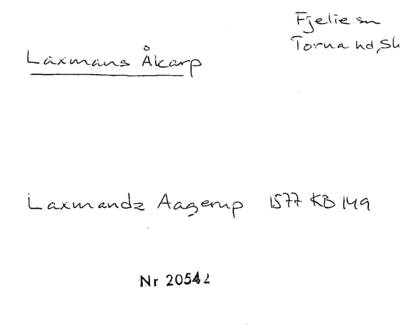 Fjelie sn
Torna hd, Sk
Laxmans Åkarp
Laxmandz Aagerup 1577 KB 149
Nr 20542